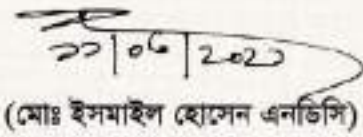 ২২|০৬|২০২২
(মোঃ ইসমাইল হোসেন এনডিসি)